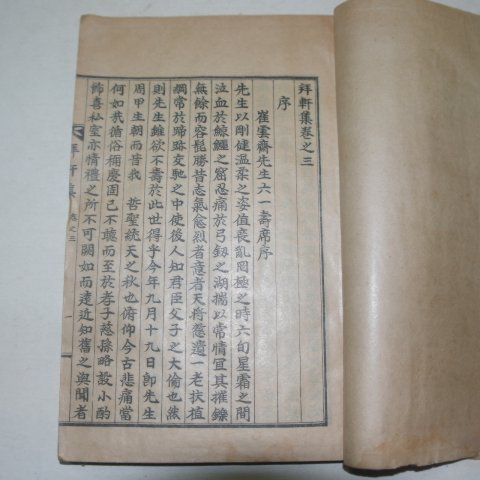 拜軒集卷之三
序
崔雲齋先生六一壽席序
先生以剛健溫柔之姿值喪亂罔極之時六旬星霜之間
泣血於鯨鱷之窟忍痛於弓釼之湖揣以常情宜其摧鑠
無餘而容髭勝昔志氣愈烈者意者天將憖遺一老扶植
綱常於歸跡交馳之中使後人知君臣父子之大倫也然
則先生雖欲不壽於此世得乎今年九月十九日卽先生
周甲生朝而昔我 哲聖統天之秋也俯仰今古悲痛當
何如哉循俗稱慶固已不聽而至於孝子慈孫略設小酌
飾喜私室亦情禮之所不可闕如而遠近知舊之與聞者
拜軒集 卷之三 一